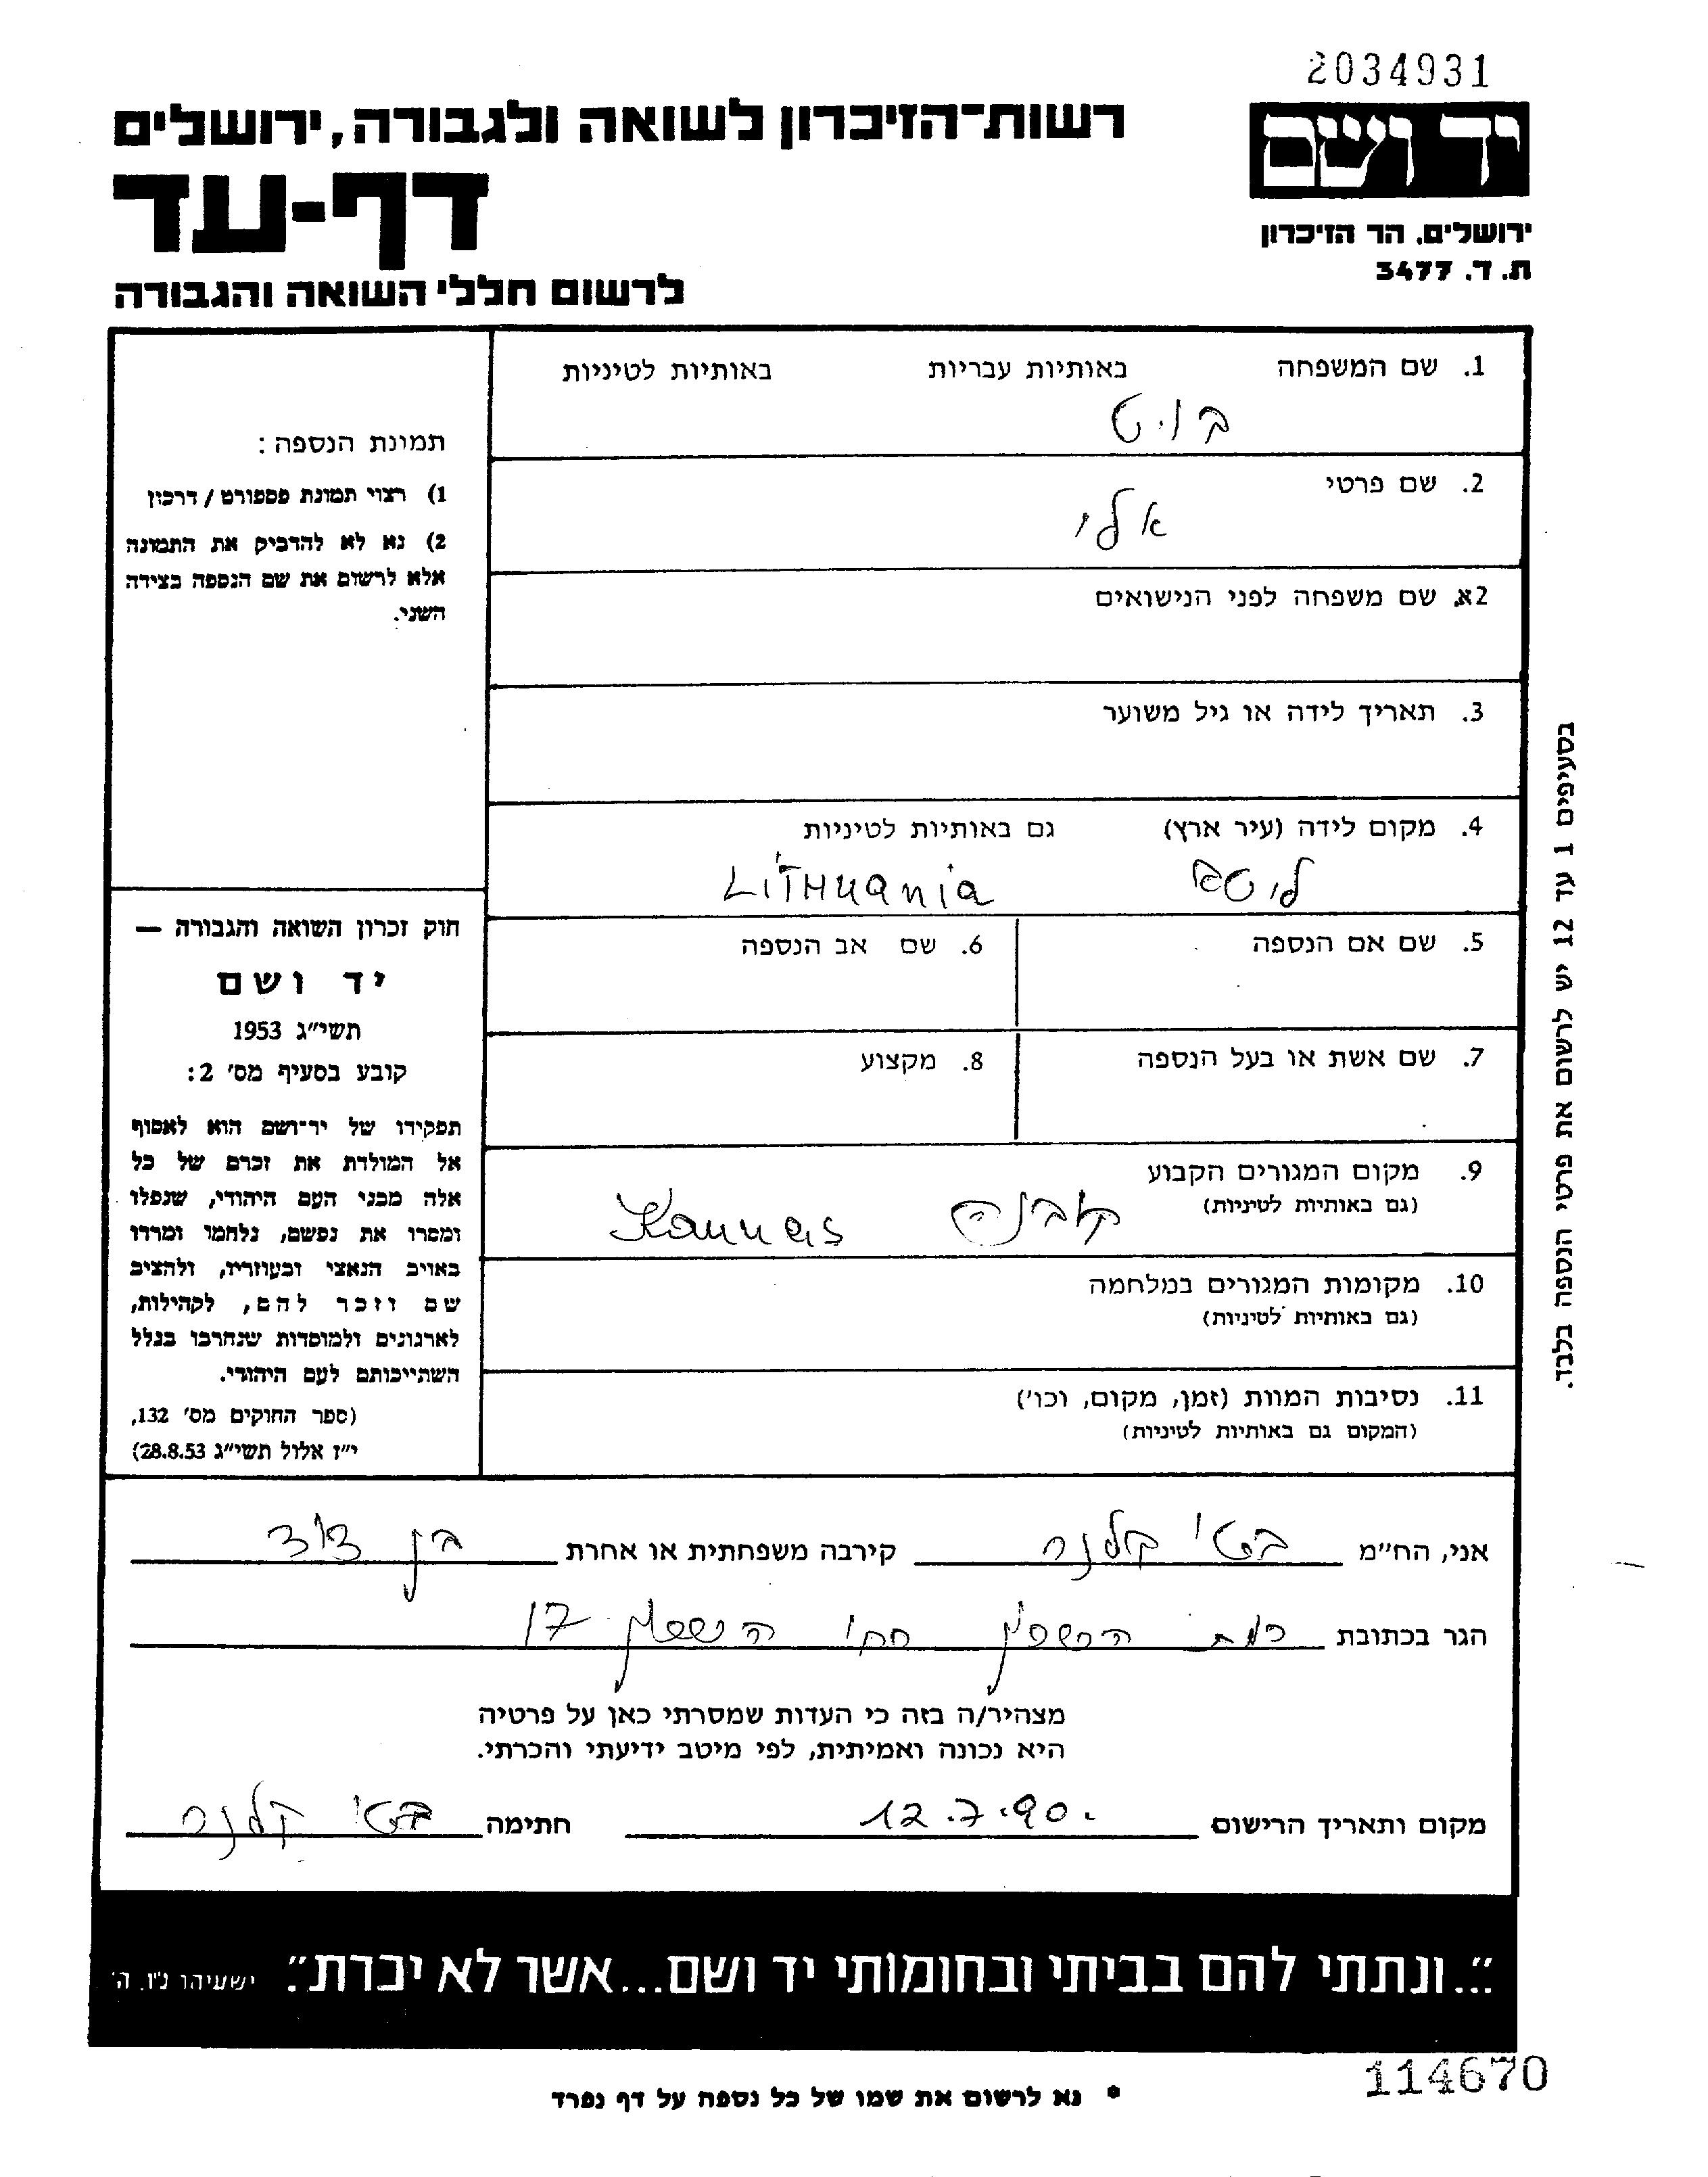 2034931
יד ושם
ירושלים, הר הזיכרון
ת. ד. 3477
רשות־הזיכרון לשואה ולגבורה, ירושלים
דף-עד
לרשום חללי השואה והגבורה
1. שם המשפחה באותיות עבריות באותיות לטיניות
בויט
2. שם פרטי
אלי
2א. שם משפחה לפני הנישואים
3. תאריך לידה או גיל משוער
4. מקום לידה (עיר ארץ) גם באותיות לטיניות
ליטא LITHuania
5. שם אם הנספה 6. שם אב הנספה
7. שם אשת או בעל הנספה 8. מקצוע
9. מקום המגורים הקבוע
(גם באותיות לטיניות)
קובנה Kaunas
10. מקומות המגורים במלחמה
(גם באותיות לטיניות)
11. נסיבות המוות (זמן, מקום, וכו')
(המקום גם באותיות לטיניות)
תמונת הנספה:
1) רצוי תמונת פספורט / דרכון
2) נא לא להדביק את התמונה
אלא לרשום את שם הנספה בצידה
השני.
חוק זכרון השואה והגבורה —
יד ושם
תשי"ג 1953
קובע בסעיף מס' 2:
תפקידו של יד־ושם הוא לאסוף
אל המולדת את זכרם של כל
אלה מבני העם היהודי, שנפלו
ומסרו את נפשם, נלחמו ומרדו
באויב הנאצי ובעוזריו, ולהציב
שם וזכר להם, לקהילות,
לארגונים ולמוסדות שנחרבו בגלל
השתייכותם לעם היהודי.
(ספר החוקים מס' 132,
י"ז אלול תשי"ג 28.8.53)
בסעיפים 1 עד 12 יש לרשום את פרטי הנספה בלבד.
אני, הח"מ בטי קלנר קירבה משפחתית או אחרת בן דוד
הגר בכתובת רמת השרון רח' השרון 17
מצהיר/ה בזה כי העדות שמסרתי כאן על פרטיה
היא נכונה ואמיתית, לפי מיטב ידיעתי והכרתי.
מקום ותאריך הרישום 12.7.90. חתימה בטי קלנר
"...ונתתי להם בביתי ובחומותי יד ושם...אשר לא יכרת". ישעיהו נ"ו, ה'
114670
* נא לרשום את שמו של כל נספה על דף נפרד